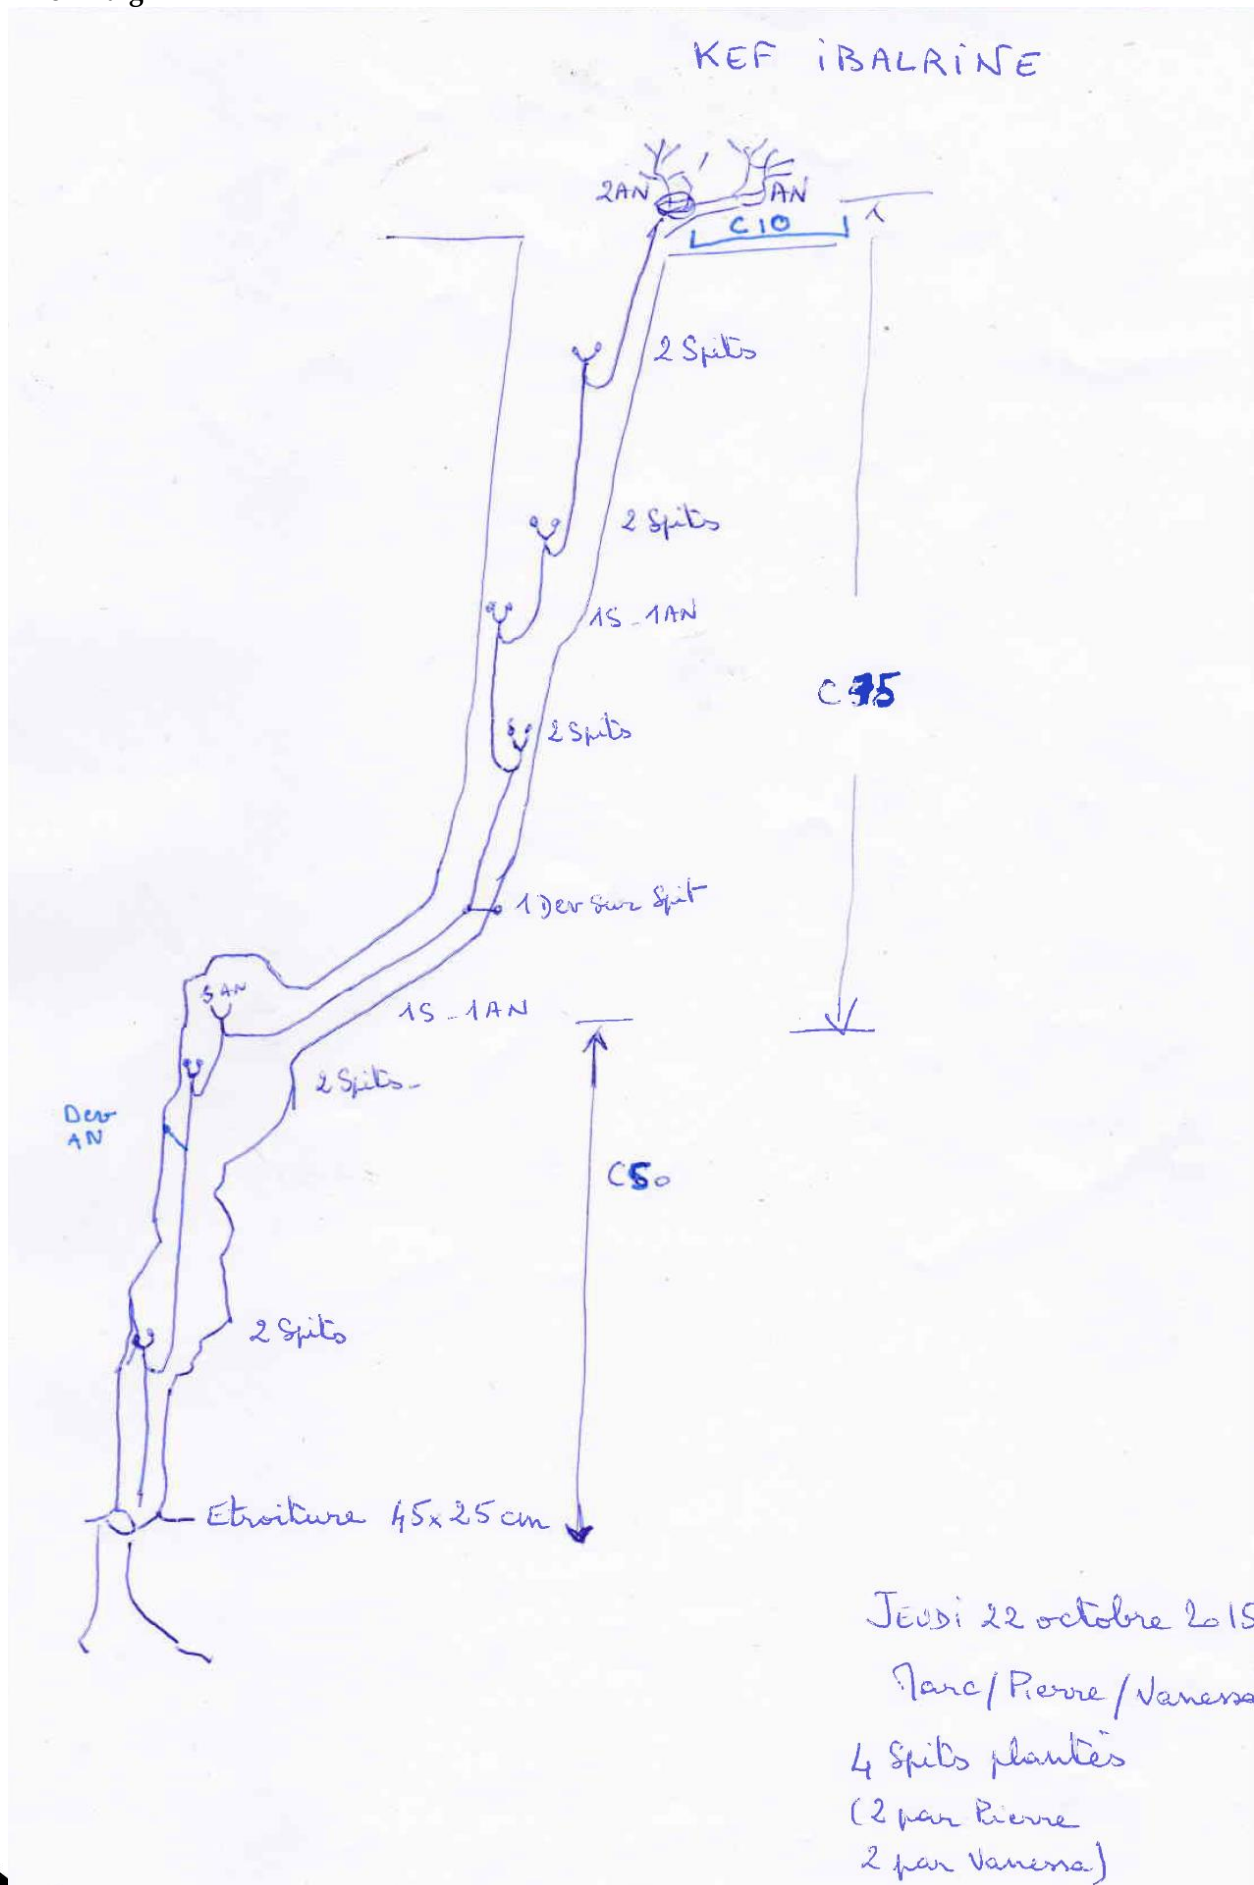 KEF iBALRiNE
2AN
AN
C 10
2 Spits
2 Spits
1S - 1AN
C 75
2 Spits
1 Dev sur Spit
S AN
1S - 1AN
2 Spits -
Dev
AN
C50
2 Spits
Etroiture 45x25 cm
JEUDi 22 octobre 2015
Marc / Pierre / Vanessa
4 Spits plantés
(2 par Pierre
2 par Vanessa)